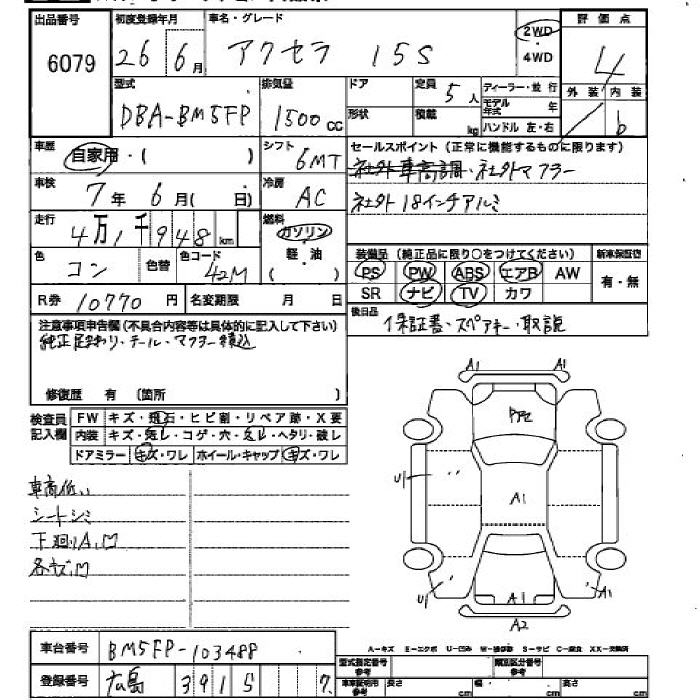 出品番号 初度登録年月 車名・グレード 評価点
6079 26年6月 アクセラ 15S 2WD・4WD 4
外装 内装
b
型式 排気量 ドア 定員 5人 ディーラー・並行
DBA-BM5FP 1500cc 形状 積載 kg モデル年式 年
ハンドル 左・右
車歴 自家用・( ) シフト 6MT セールスポイント(正常に機能するものに限ります)
社外車高調・社外マフラー
車検 7年6月( 日) 冷房 AC 社外18インチアルミ
走行 4万1千948km 燃料 ガソリン・軽・油 ( )
装備品(純正品に限り○をつけてください) 新車保証書
色 コン 色替 色コード 42M PS PW ABS エアB AW 有・無
SR ナビ TV カワ
R券 10770円 名変期限 月 日
後日品 保証書・スペアキー・取説
注意事項申告欄(不具合内容等は具体的に記入して下さい)
純正足まわり・テール・マフラー積込
修復歴 有 〔箇所 〕
検査員記入欄 FW キズ・飛石・ヒビ割・リペア跡・X要
内装 キズ・汚レ・コゲ・穴・スレ・ヘタリ・破レ
ドアミラー キズ・ワレ ホイール・キャップ キズ・ワレ
車高低い
シートシミ
下廻りA,凹
各キズ凹
A1 A1
U1 A1
U1 A1 A1
A2
A-キズ E-エクボ U-凹み W-補修跡 S-サビ C-腐食 XX-交換済
車台番号 BM5FP-103488 型式指定番号 参考 類別区分番号 参考
登録番号 広島 391 5 7 車車証明用 参考 長さ cm 幅 cm 高さ cm